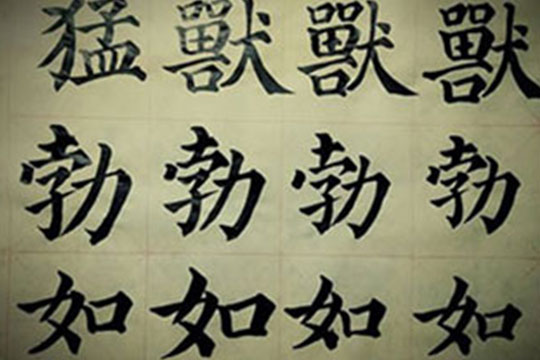 猛獸獸獸
勃勃勃勃
如如如如